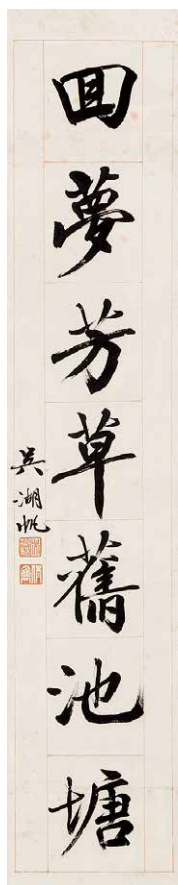 回夢芳草舊池塘
吳湖帆